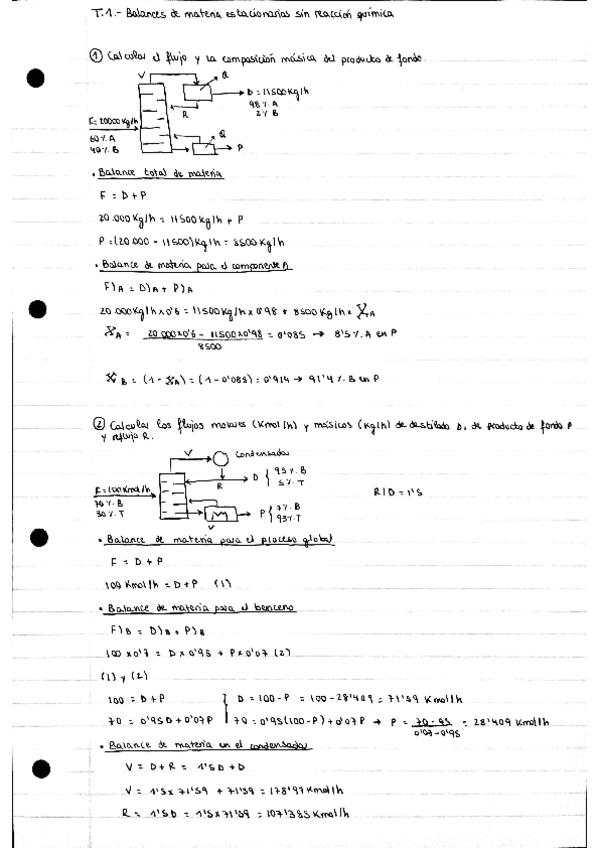 T.1.- Balances de materia estacionarios sin reacción química
① Calcular el flujo y la composición másica del producto de fondo.
V
Q
D = 11500 Kg/h
98 % A
2 % B
R
F = 20000 Kg/h
60 % A
40 % B
Q
P
• Balance total de materia
F = D + P
20.000 Kg/h = 11500 Kg/h + P
P = (20.000 - 11500) Kg/h = 8500 Kg/h
• Balance de materia para el componente A
F)A = D)A + P)A
20.000 Kg/h x 0'6 = 11500 Kg/h x 0'98 + 8500 Kg/h x XA
XA = 20.000x0'6 - 11500x0'98 / 8500 = 0'085 → 8'5 % A en P
XB = (1 - XA) = (1 - 0'085) = 0'914 → 91'4 % B en P
② Calcular los flujos molares (Kmol/h) y másicos (Kg/h) de destilado D, de producto de fondo P
y reflujo R.
V
Condensador
D { 95 % B
5 % T
R
R/D = 1'5
F = 100 Kmol/h
70 % B
30 % T
P { 7 % B
93 % T
V
• Balance de materia para el proceso global
F = D + P
100 Kmol/h = D + P (1)
• Balance de materia para el benceno
F)B = D)B + P)B
100 x 0'7 = D x 0'95 + P x 0'07 (2)
(1) y (2)
100 = D + P } D = 100 - P = 100 - 28'409 = 71'59 Kmol/h
70 = 0'95D + 0'07P | 70 = 0'95(100 - P) + 0'07P → P = 70 - 95 / 0'07 - 0'95 = 28'409 Kmol/h
• Balance de materia en el condensador
V = D + R = 1'5D + D
V = 1'5 x 71'59 + 71'59 = 178'97 Kmol/h
R = 1'5D = 1'5 x 71'59 = 107'385 Kmol/h